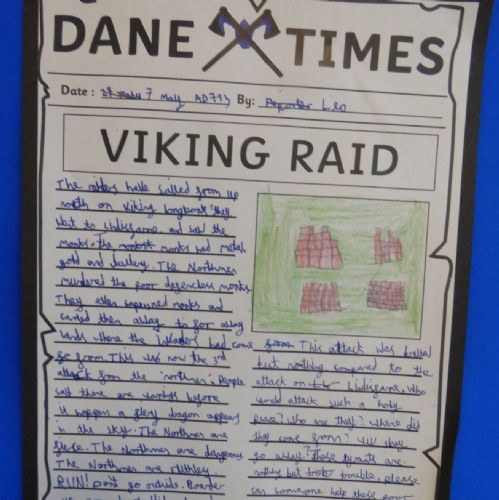 DANE TIMES
Date: 7 May AD793 By: Leo
VIKING RAID
The raiders have sailed from up
north on viking longboats they
went to Lindisgarne and saw the
monks. The monks had metal
gold and jewllery. The Northmen
murdered the poor defenceless monks.
They even captured monks and
carried them away to far away
lands where the had come
go from. This is now the 3rd
attack from the 'northmen'. People
said there are warnings before
it happens a firey dragon appears
in the sky. The Northmen are
fierce. The Northmen are dangerous
The Northmen are
RUN! Dont go outside.
This attack was brutal
but nothing compared to the
attack on Lindisgarne. Who
would attack such a holy
place? Who are they? Where did
they come from? Will they
go away? these tyrants are
nothing but trouble. please
can someone help these poor